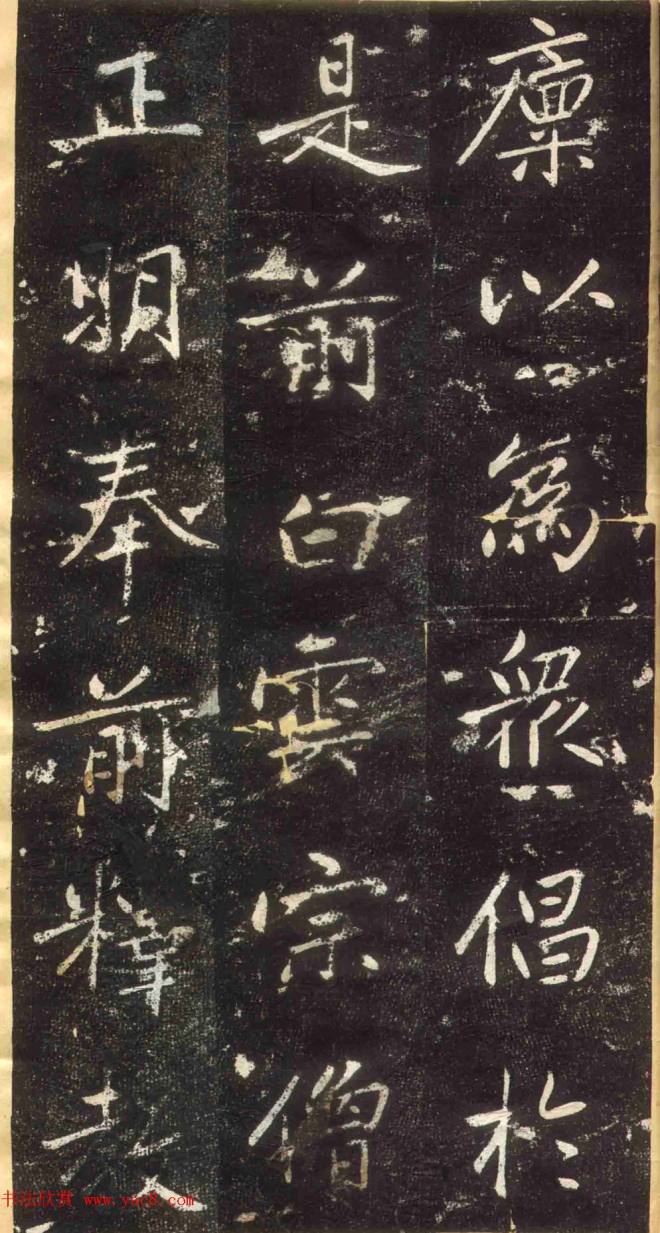 廩以為衆倡於
是前白雲宗僧
正明奉前釋教
书法欣赏 www.yac8.com